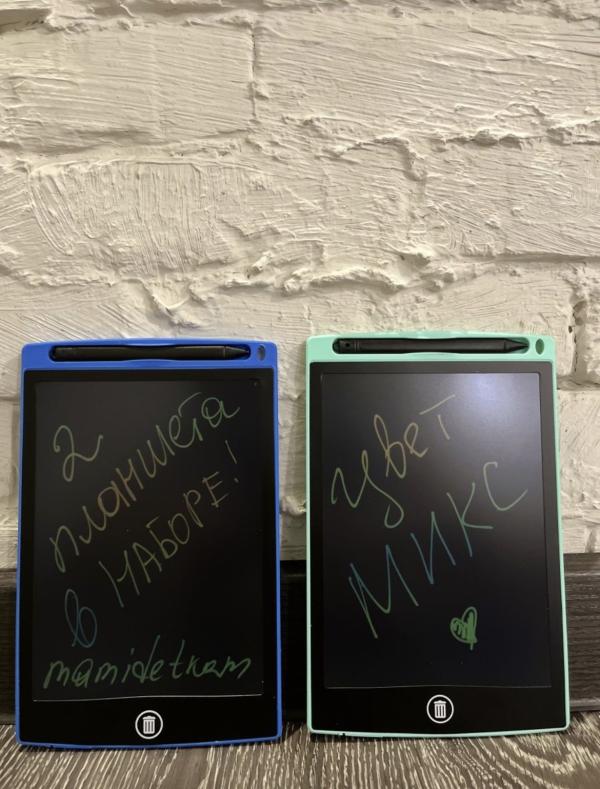 2
планшета
в НАБОРЕ!
mamidetkam
Цвет
МИКС